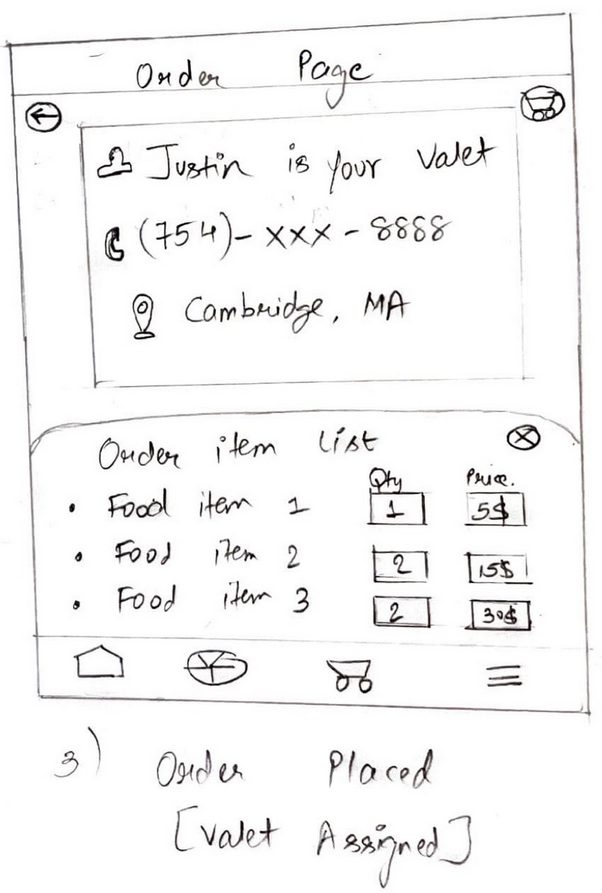 Order Page
Justin is your Valet
(754)-xxx-8888
Cambridge, MA
Order item list
Qty Price.
• Food item 1 1 5$
• Food item 2 2 15$
• Food item 3 2 30$
3) Order Placed
[Valet Assigned]